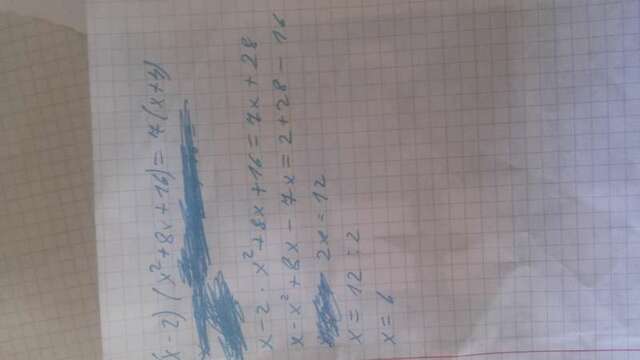 (x-2)(x²+8x+16)=7(x+4)
x-2·x²+8x+16=7x+28
x-x²+8x-7x=2+28-16
2x=12
x=12:2
x=6